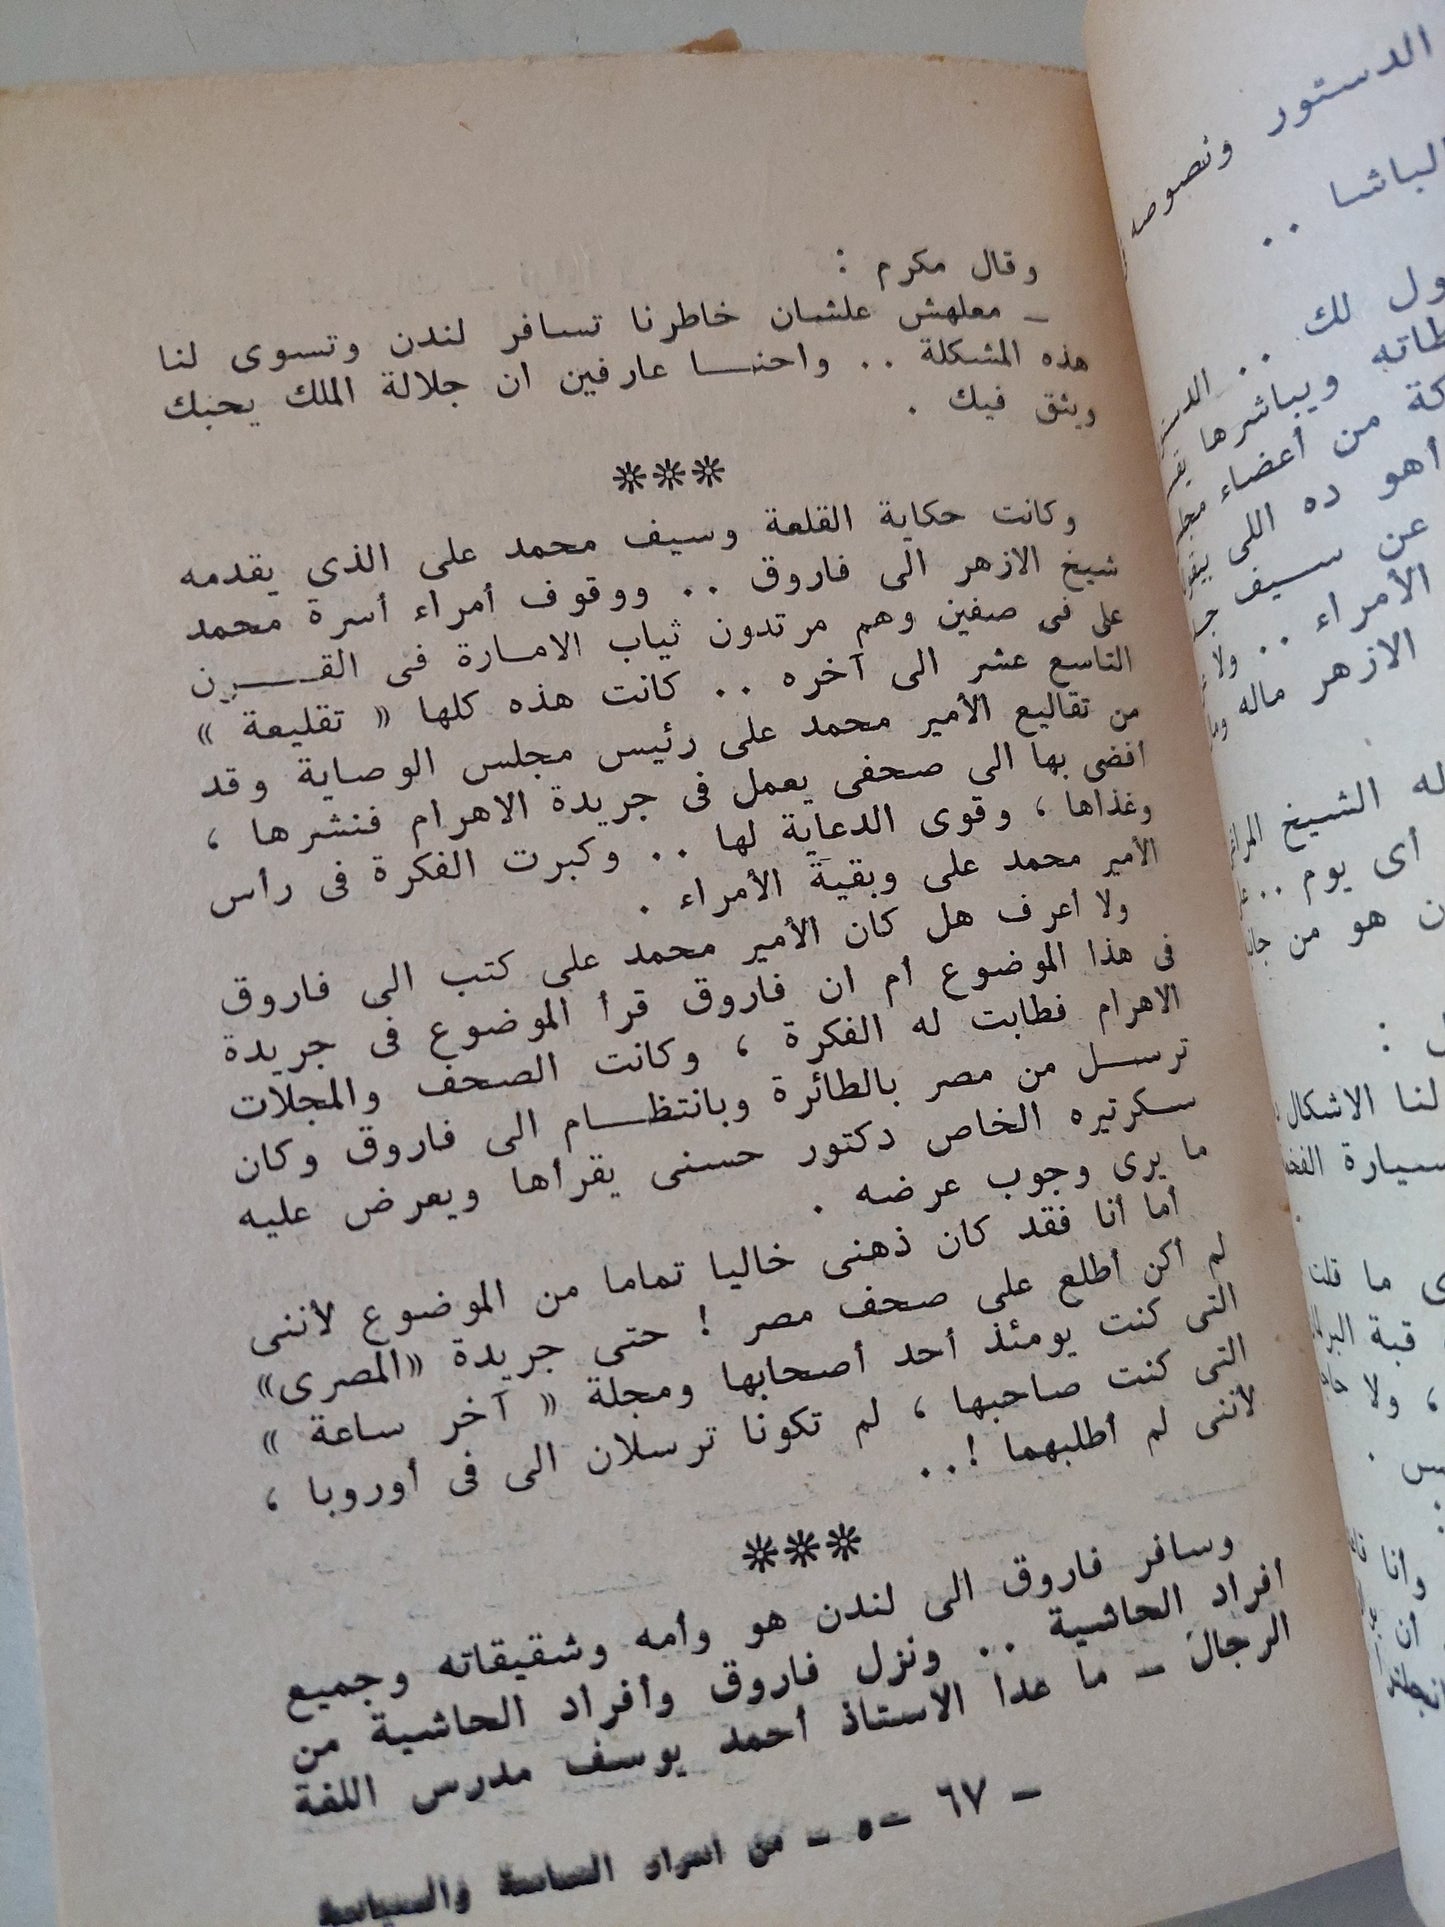 وقال مكرم :
ـ معلهش علشان خاطرنا تسافر لندن وتسوى لنا
هذه المشكلة .. واحنــا عارفين ان جلالة الملك يحبك
ويثق فيك .
***
وكانت حكاية القلعة وسيف محمد على الذي يقدمه
شيخ الازهر الى فاروق .. ووقوف أمراء أسرة محمد
على فى صفين وهم مرتدون ثياب الامارة فى القـــرن
التاسع عشر الى آخره .. كانت هذه كلها « تقليعة »
من تقاليع الأمير محمد على رئيس مجلس الوصاية وقد
افضى بها الى صحفى يعمل فى جريدة الاهرام فنشرها ،
وغذاها ، وقوى الدعاية لها .. وكبرت الفكرة فى رأس
الأمير محمد على وبقية الأمراء .
ولا أعرف هل كان الأمير محمد على كتب الى فاروق
فى هذا الموضوع أم ان فاروق قرأ الموضوع فى جريدة
الاهرام فطابت له الفكرة ، وكانت الصحف والمجلات
ترســل من مصر بالطائرة وبانتظــام الى فاروق وكان
سكرتيره الخاص دكتور حسنى يقرأها ويعرض عليه
ما يرى وجوب عرضه .
أما أنا فقد كان ذهنى خاليا تماما من الموضوع لأننى
لم أكن أطلع على صحف مصر ! حتى جريدة «المصرى»
التى كنت يومئذ أحد أصحابها ومجلة « آخر ساعة »
التى كنت صاحبها ، لم تكونا ترسلان الى فى أوروبا ،
لأننى لم أطلبهما !..
***
وسافر فاروق الى لندن هو وأمه وشقيقاته وجميع
افراد الحاشية .. ونزل فاروق وأفراد الحاشية من
الرجال ـ ما عدا الاستاذ أحمد يوسف مدرس اللغة
ـ ٦٧ ـ
ـ ٥ ـ من اسرار الساسة والسياسة
الدستور ونصوصه
الباشا ..
ول لك .. الدستور
ويباشرها
كة من أعضاء
أهو ده اللى
عن سيف
الأمراء .. ولا
الازهر ماله
له الشيخ
أى يوم ..
ن هو من
:
لنا الاشكال
سيارة
ى ما قلت
قبة
، ولا
وأنا
أن